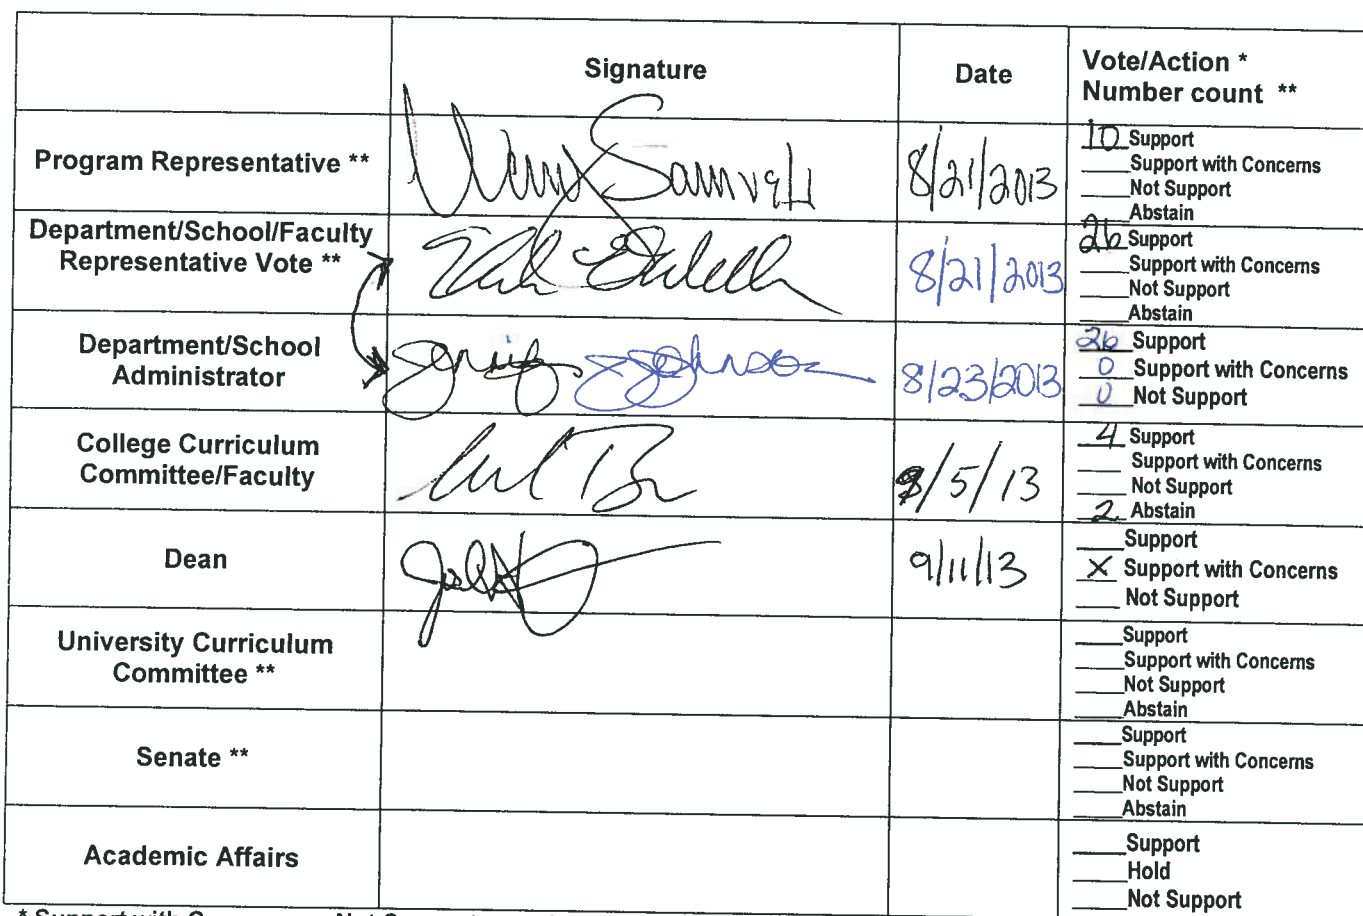 Signature
Date
Vote/Action *
Number count **
Program Representative **
8/21/2013
10 Support
____Support with Concerns
____Not Support
____Abstain
Department/School/Faculty
Representative Vote **
8/21/2013
26 Support
____Support with Concerns
____Not Support
____Abstain
Department/School
Administrator
8/23/2013
26 Support
0 Support with Concerns
0 Not Support
College Curriculum
Committee/Faculty
/5/13
4 Support
____ Support with Concerns
____ Not Support
2 Abstain
Dean
9/11/13
____Support
X Support with Concerns
____ Not Support
University Curriculum
Committee **
____Support
____Support with Concerns
____Not Support
____Abstain
Senate **
____Support
____Support with Concerns
____Not Support
____Abstain
Academic Affairs
____Support
____Hold
____Not Support
* Support with